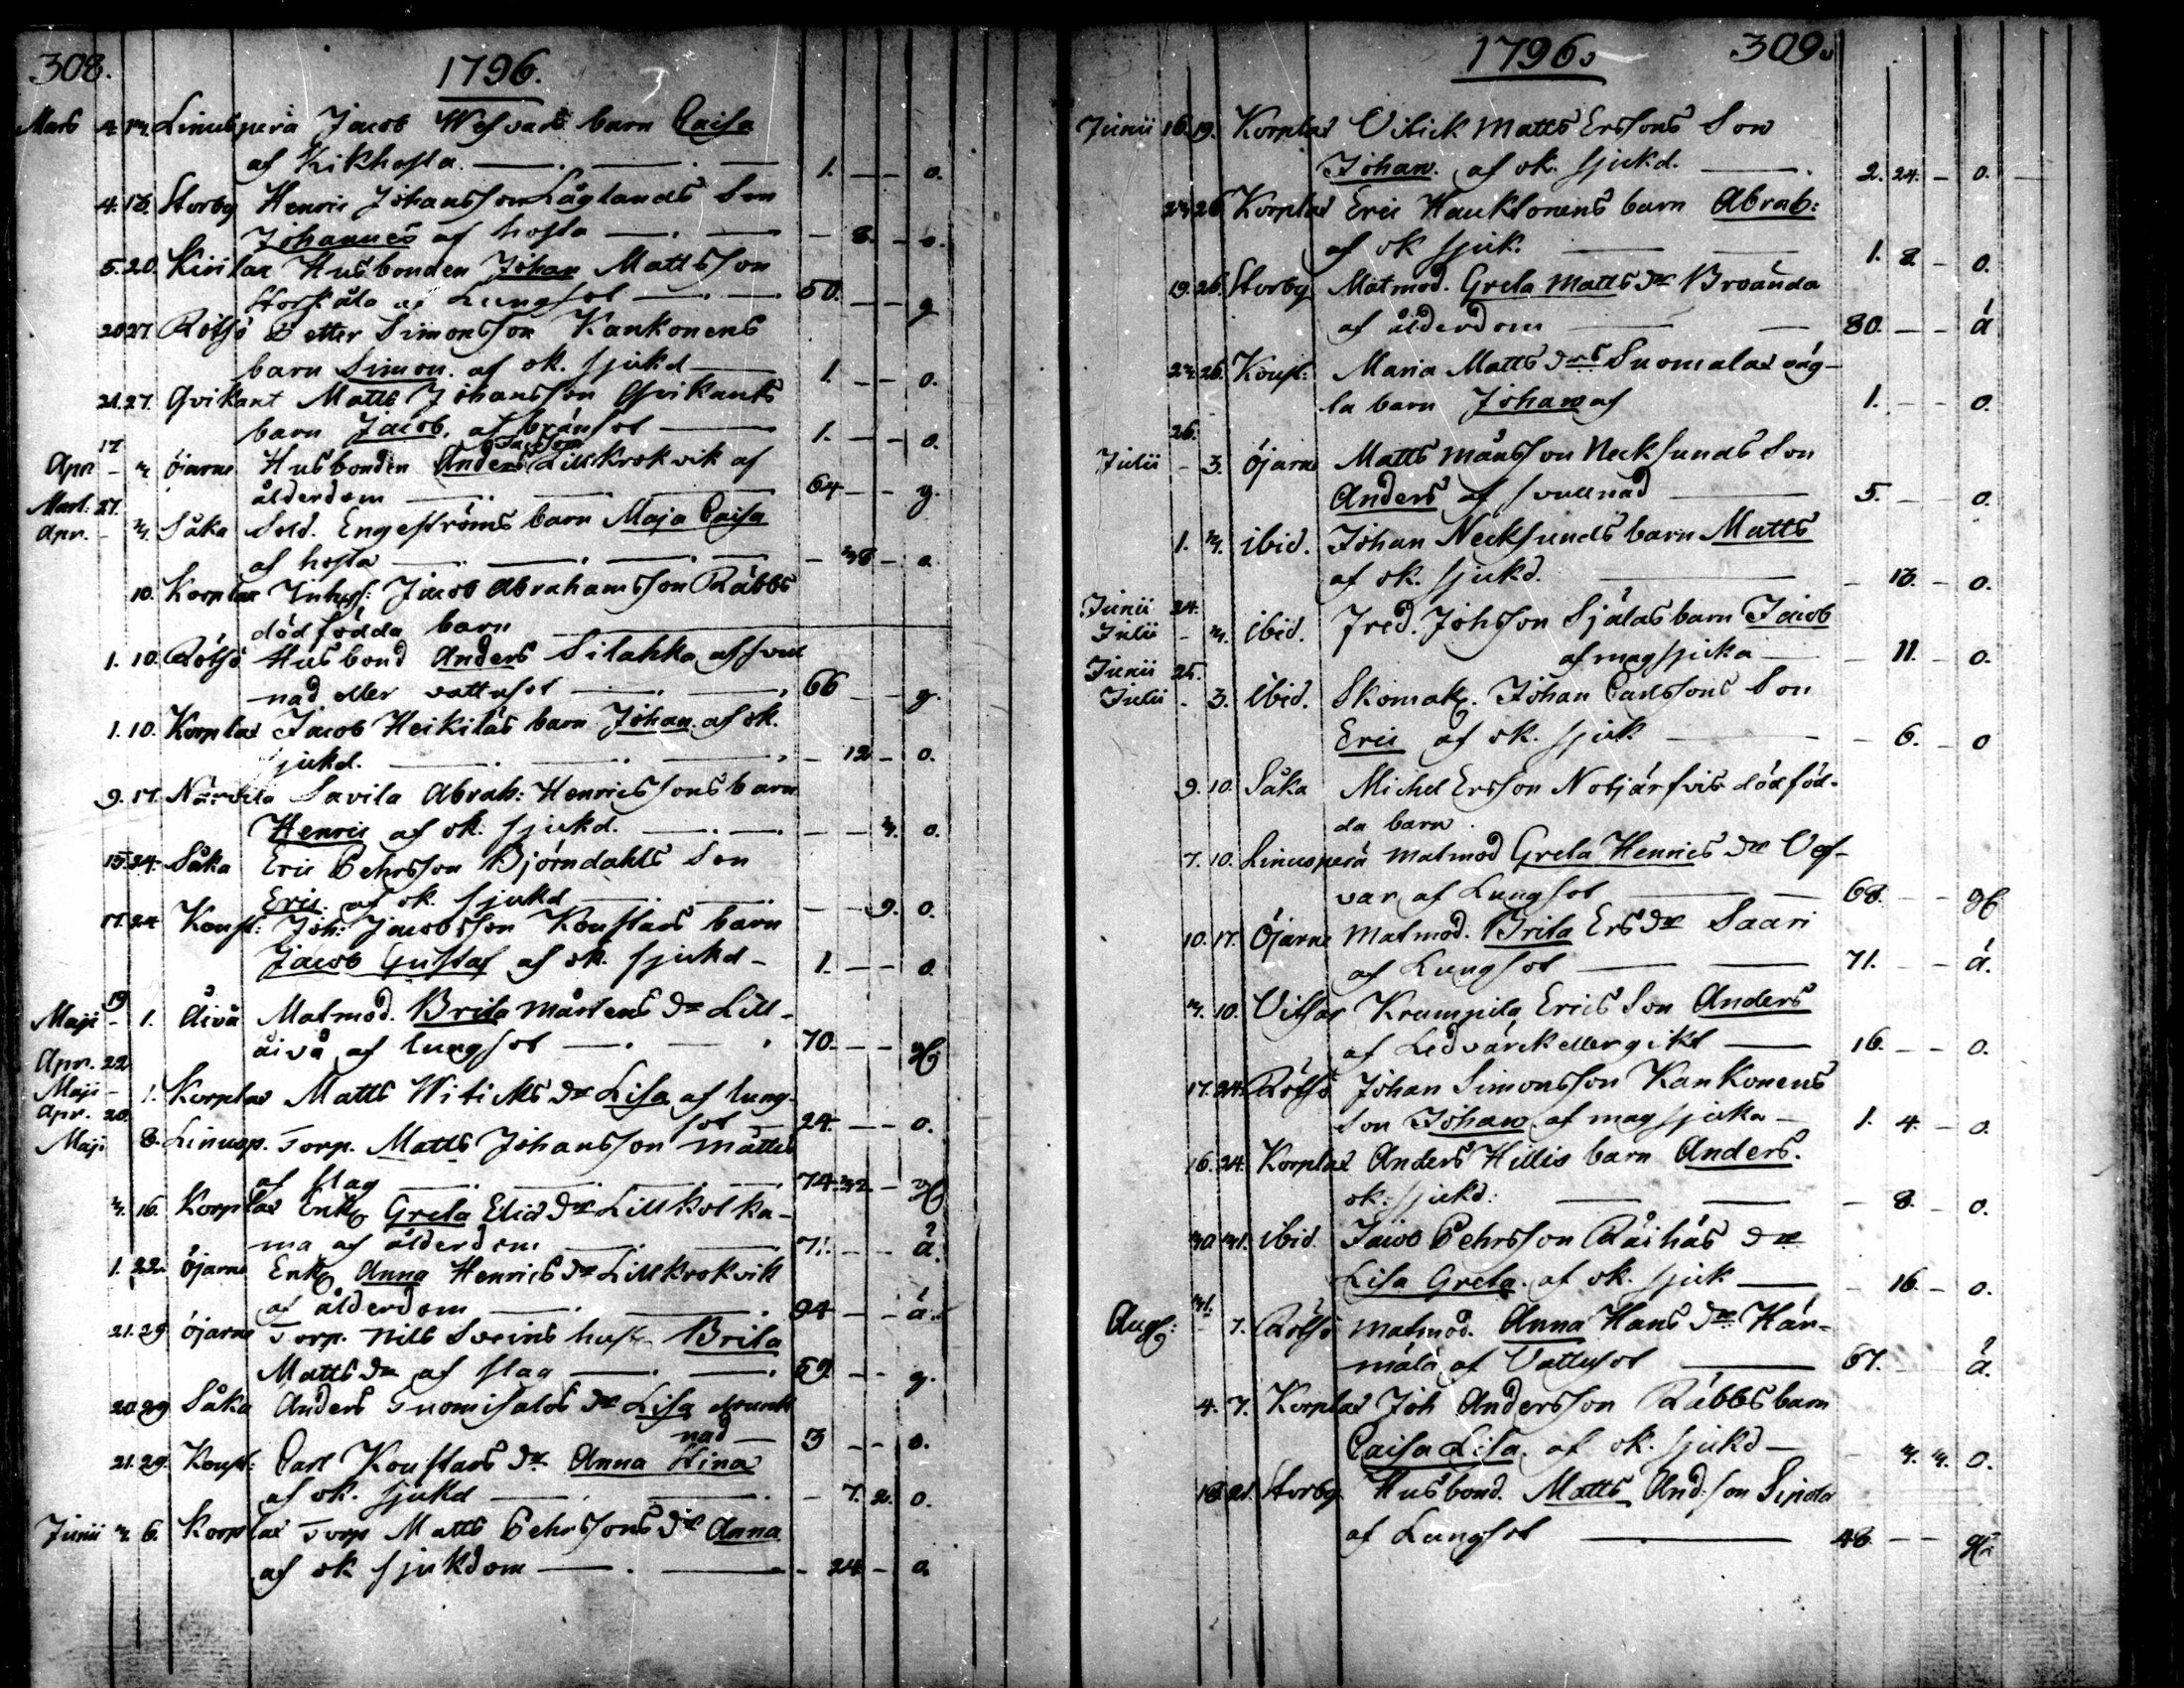 308. 1796.
Mars 4. 13. Linusperä Jacob Wesvars barn Caisa
af Kikhosta. 1. o.
4. 13. Storby Henric Johansson Låglands Son
Johannes af hosta 8. o.
5. 20. Kivilax Husbonden Johan Mattsson
Storskåla af Lungsot 50. g
20 27. Röthö Petter Simonsson Kankonens
barn Simon. af ok. sjukd 1. o.
21. 27. Qvikant Matts Johansson Qvikants
barn Jacob, af bränsot 1. o.
17
Apr. 3 öjarne Husbonden Anders Lillkrokvik af
ålderdom 64 g.
Mart: 27.
Apr. 3. Såka Sold. Engeströms barn Maja Caisa
af hosta 36 o.
10. Korplax Inhys: Jacob Abrahamsson Räbbs
dödfödda barn
1. 10. Röthö Husbond Anders Silahka af svul
nad eller vattusot 66 g.
1. 10. Korplax Jacob Heikiläs barn Johan. af ok.
sjukd. 12 o.
9. 17. Närvilä Savila Abrah: Henricssons barn
Henric af ok. sjukd. 3. o.
15. 24. Såka Eric Pehrsson Björndahls Son
Eric. af ok. sjukd 9. o.
17. 24 Konst: Joh: Jacobsson Konstars barn
Jacob Gustaf af ok. sjukd 1. o.
19
Maji 1. Åivå Matmod. Brita Mårtens dr Lill-
åivå af lungsot 70.
Apr. 22
Maji 1. Korplax Matts Witicks dr Lisa af lung-
sot 24. o.
Apr. 20.
Maji 8. Linusp. Torp. Matts Johansson Mattes
af slag 74. 32.
3. 16. Korplax Enk. Greta Elias dr Lillkolka-
ma af ålderdom 71. ä
1. 22 öjarne Enk. Anna Henrics dr Lillkrokvik
af ålderdom 94 ä.
21. 29 öjarne Torp. Nils Sveins hust. Brita
Matts dr af slag 59. g.
20 29 Såka Anders Suomisalos dr Lisa af svull
nad 3 o.
21. 29. Konst: Carl Konstars dr Anna Stina
af ok. sjukd 7. 2. o.
Junii 3. 6. Korplax Torp Matts Pehrssons dr Anna
af ok sjukdom 24 o.
1796. 309.
Junii 16. 19. Korplax Vitick Matts Erssons Son
Johan. af ok. sjukd. 2. 24. o.
23. 26 Korplax Eric Hauktonens barn Abrah:
af ok sjuk. 1. 8. o.
19. 26. Storby Matmod. Greta Matts dr Broända
af ålderdom 80. ä
23. 26. Konst: Maria Matts drs Suomalax oäg-
ta barn Johan af 1. o.
26.
Julii 3. Öjarne Matts Månsson Necksunds Son
Anders af svullnad 5. o.
1. 3. ibid. Johan Necksunds barn Matts
af ok. sjukd. 13. o.
Junii 24.
Julii 3. ibid. Fred. Johsson Själas barn Jacob
af magsjuka 11. o.
Junii 25.
Julii 3. ibid. Skomak. Johan Carlssons Son
Eric af ok. sjuk 6. o
9. 10. Såka Michel Ersson Notjärfvis dödföd-
da barn.
7. 10. Linusperä Matmod Greta Henrics dr Ves-
var af Lungsot 68.
10. 17. Öjarne Matmod. Brita Ers dr Saari
af Lungsot 71. ä.
3. 10. Vitsar Krumpila Erics Son Anders
af Ledvärck eller gikt 16. o.
17. 24. Röthö Johan Simonsson Kankonens
Son Johan af magsjuka 1. 4. o.
16. 24. Korplax Anders Hillis barn Anders.
ok. sjukd. 8. o.
30 31. ibid Jacob Pehrsson Räihäs dr
Lisa Greta. af ok. sjuk 16. o.
31.
Aug: 7. Röthö Matmod. Anna Hans dr Här-
mälä af Vattusot 67. ä.
4. 7. Korplax Joh Andersson Räbbs barn
Caisa Lisa. af ok. sjukd 3. 3. o.
18 21. Storby Husbond. Matts Andsson Sipola
af Lungsot 48.